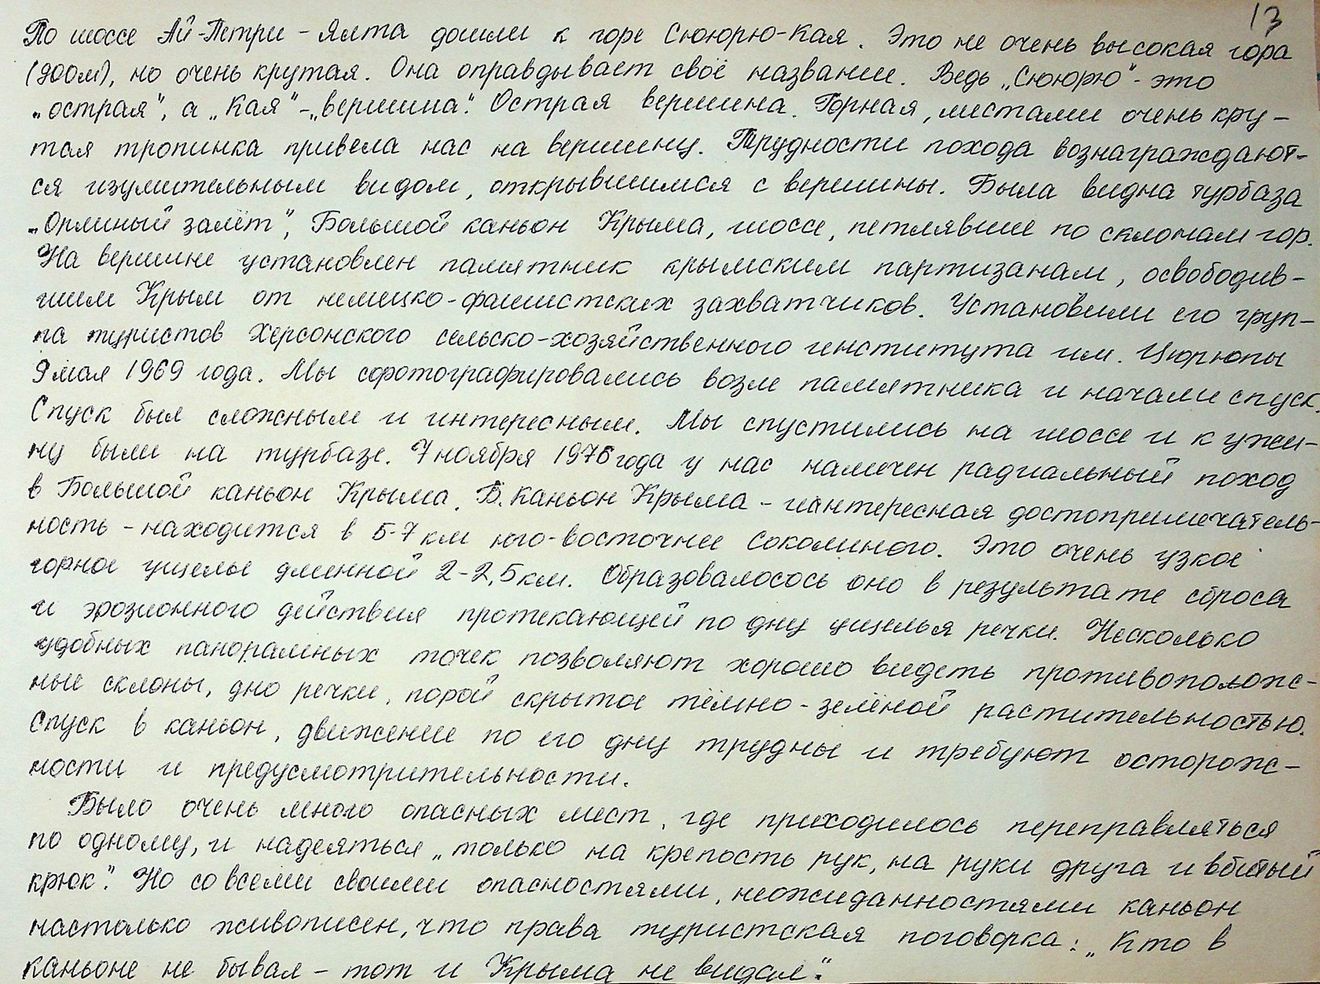 13
По шоссе Ай-Петри - Ялта дошли к горе Сююрю-Кая. Это не очень высокая гора
(900м), но очень крутая. Она оправдывает своё название. Ведь „Сююрю" - это
„острая", а „Кая" - „вершина". Острая вершина. Горная, местами очень кру-
тая тропинка привела нас на вершину. Трудности похода вознаграждают-
ся изумительным видом, открывшимся с вершины. Была видна турбаза
„Орлиный залёт", Большой каньон Крыма, шоссе, петлявшее по склонам гор.
На вершине установлен памятник крымским партизанам, освободив-
шим Крым от немецко-фашистских захватчиков. Установили его груп-
па туристов Херсонского сельско-хозяйственного института им. Цюрюпы
9 мая 1969 года. Мы сфотографировались возле памятника и начали спуск.
Спуск был сложным и интересным. Мы спустились на шоссе и к ужи-
ну были на турбазе. 7 ноября 1976 года у нас намечен радиальный поход
в Большой каньон Крыма. Б. Каньон Крыма - интересная достопримечатель-
ность - находится в 5-7 км юго-восточнее Соколиного. Это очень узкое
горное ущелье длинной 2-2,5 км. Образовалосось оно в результате сброса
и эрозионного действия протекающей по дну ущелья речки. Несколько
удобных панорамных точек позволяют хорошо видеть противополож-
ные склоны, дно речки, порой скрытое тёмно-зелёной растительностью.
Спуск в каньон, движение по его дну трудны и требуют осторож-
ности и предусмотрительности.
Было очень много опасных мест, где приходилось переправляться
по одному, и надеяться „только на крепость рук, на руки друга и вбитый
крюк". Но со всеми своими опасностями, неожиданностями каньон
настолько живописен, что права туристская поговорка: „Кто в
каньоне не бывал - тот и Крыма не видал".